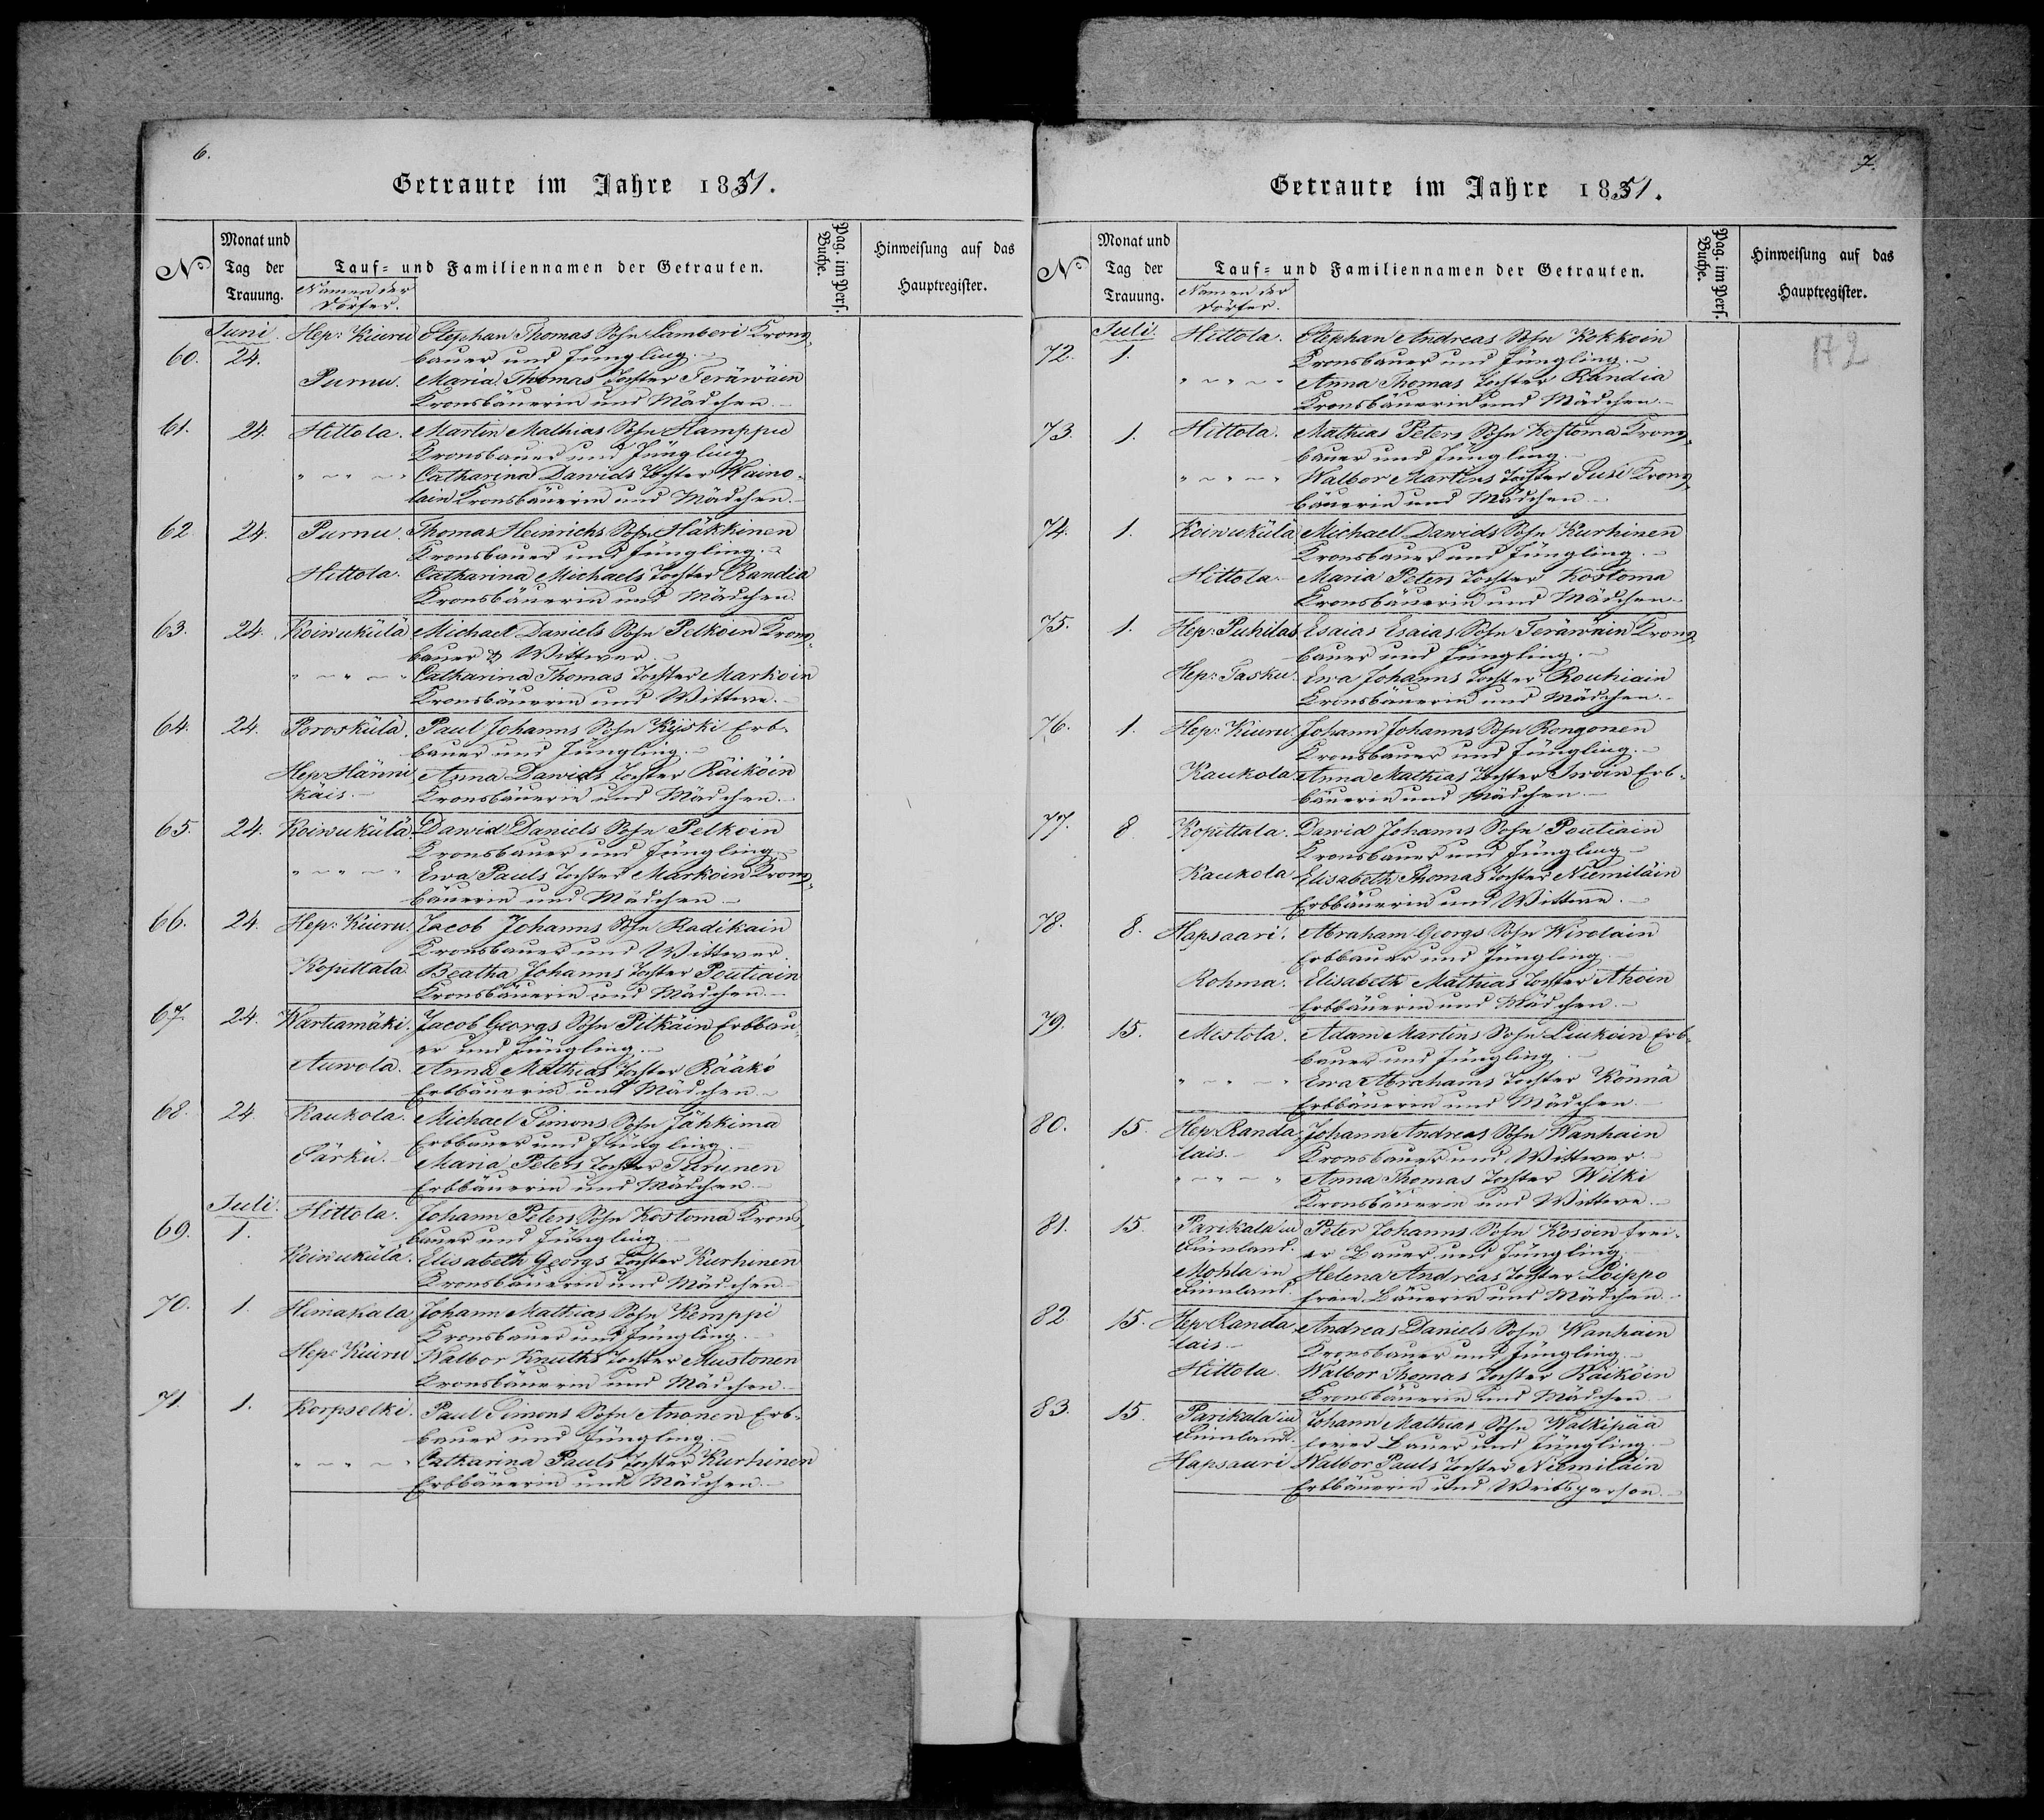 6.
Getraute im Jahre 1851.
No
Monat und Tag der Trauung.
Tauf- und Familiennamen der Getrauten.
Namen der Dörfer.
Pag. im Pers. Buche.
Hinweisung auf das Hauptregister.
Juni. Hep: Kiuru Stephan Thomas Sohn Lamberi Krons-
60. 24. bauer und Jüngling.
Purnu. Maria Thomas Tochter Teräwäin
Kronsbäuerin und Mädchen.
61. 24. Hittola. Martin Mathias Sohn Hamppu
Kronsbauer und Jüngling
" ~ " ~ " Catharina Dawids Tochter Waino-
lain Kronsbäuerin und Mädchen.
62. 24. Purnu. Thomas Heinrichs Sohn Häkkinen
Kronsbauer und Jüngling.
Hittola. Catharina Michaels Tochter Randia
Kronsbäuerin und Mädchen.
63. 24. Koiwukülä Michael Daniels Sohn Pelkoin Krons-
bauer & Wittwer.
" ~ " ~ " Catharina Thomas Tochter Markoin
Kronsbäuerin und Wittwe.
64. 24. Poroskülä. Paul Johanns Sohn Kijski Erb-
bauer und Jüngling.
Hep: Hänni Anna Dawids Tochter Räiköin
käis. Kronsbäuerin und Mädchen.
65. 24. Koiwukülä Dawid Daniels Sohn Pelkoin
Kronsbauer und Jüngling.
" ~ " ~ " Ewa Pauls Tochter Markoin Krons-
bäuerin und Mädchen
66. 24. Hep: Kiuru. Jacob Johanns Sohn Radikain
Kronsbauer und Wittwer.
Kopittala Beatha Johanns Tochter Poutiain
Kronsbäuerin und Mädchen.
67. 24. Wartiamäki. Jacob Georgs Sohn Pitkäin Erbbau-
er und Jüngling.
Auwola. Anna Mathias Tochter Rääkö
Erbbäuerin und Mädchen.
68. 24. Kaukola. Michael Simons Sohn Jähkimä
Erbbauer und Jüngling.
Särkü. Maria Peters Tochter Turunen
Erbbäuerin und Mädchen
Juli. Hittola. Johann Peters Sohn Kostoma Krons-
69. 1. bauer und Jüngling
Koiwukülä. Elisabeth Georgs Tochter Kurhinen
Kronsbäuerin und Mädchen
70. 1. Himakala Johann Mathias Sohn Kemppi
Kronsbauer und Jüngling.
Hep: Kiuru Walbor Knuths Tochter Mustonen
Kronsbäuerin und Mädchen
71. 1. Korpselki. Paul Simons Sohn Anonen Erb-
bauer und Jüngling.
" ~ " ~ " Catharina Pauls Tochter Kurhinen
Erbbäuerin und Mädchen.
7.
Getraute im Jahre 1851.
No
Monat und Tag der Trauung.
Tauf- und Familiennamen der Getrauten.
Namen der Dörfer.
Pag. im Pers. Buche.
Hinweisung auf das Hauptregister.
Juli. Hittola. Stephan Andreas Sohn Kokkoin
72. 1. Kronsbauer und Jüngling.
" ~ " ~ " Anna Thomas Tochter Randia
Kronsbäuerin und Mädchen
73. 1. Hittola. Mathias Peters Sohn Kostoma Krons-
bauer und Jüngling.
" ~ " ~ " Walbor Martins Tochter Susi Krons-
bäuerin und Mädchen
74. 1. Koiwukülä Michael Dawids Sohn Kurhinen
Kronsbauer und Jüngling.
Hittola. Maria Peters Tochter Kostoma
Kronsbäuerin und Mädchen
75. 1. Hep: Puhilas Esaias Esaias Sohn Teräwäin Krons-
bauer und Jüngling.
Hep: Tasku. Ewa Johanns Tochter Rouhiain
Kronsbäuerin und Mädchen
76. 1. Hep: Kiuru Johann Johanns Sohn Rongonen
Kronsbauer und Jüngling.
Kaukola Anna Mathias Tochter Iwoin Erb-
bäuerin und Mädchen
77. 8. Kopittala. Dawid Johanns Sohn Poutiain
Kronsbauer und Jüngling
Kaukola Elisabeth Thomas Tochter Niemiläin
Erbbäuerin und Wittwe.
78. 8. Hapsaari. Abraham Georgs Sohn Wirolain
Erbbauer und Jüngling.
Rohma. Elisabeth Mathias Tochter Ahoin
Erbbäuerin und Mädchen.
79. 15. Mistola. Adam Martins Sohn Liukoin Erb-
bauer und Jüngling.
" ~ " ~ " Ewa Abrahams Tochter Könnä
Erbbäuerin und Mädchen
80. 15. Hep: Randa Johann Andreas Sohn Wanhain
lais. Kronsbauer und Wittwer.
" ~ " ~ " Anna Thomas Tochter Wilki
Kronsbäuerin und Wittwe.
81. 15. Parikala in Peter Johanns Sohn Kosoin frei-
Finnland. er Bauer und Jüngling.
Mohla in Helena Andreas Tochter Löippo
Finnland. freie Bäuerin und Mädchen
82. 15. Hep: Randa Andreas Daniels Sohn Wanhain
lais. Kronsbauer und Jüngling
Hittola Walbor Thomas Tochter Räiköin
Kronsbäuerin und Mädchen
83. 15. Parikala in Johann Mathias Sohn Walkipää
Finnland. freier Bauer und Jüngling
Hapsaari Walbor Pauls Tochter Niemiläin
Erbbäuerin und Weibsperson.